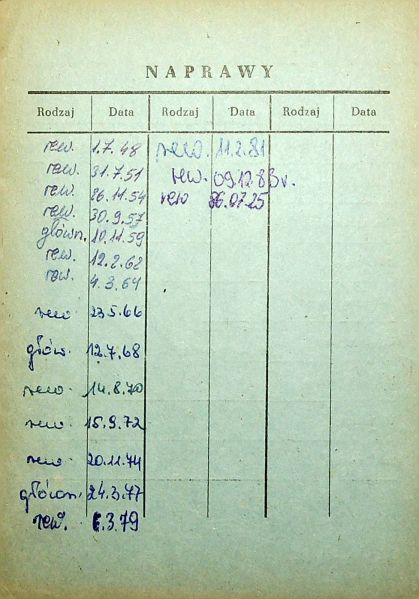 NAPRAWY
Rodzaj Data Rodzaj Data Rodzaj Data
rew. 1.7.48 rew. 11.2.81
rew. 31.7.51 rew. 09.12.83 r.
rew. 26.11.54 rew 86.07.25
rew. 30.9.57
główn. 10.11.59
rew. 12.2.62
rew. 4.3.64
rew 23.5.66
głów. 12.7.68
rew 14.8.70
rew. 15.9.72
rew. 20.11.74
główn. 24.3.77
rew. 6.3.79